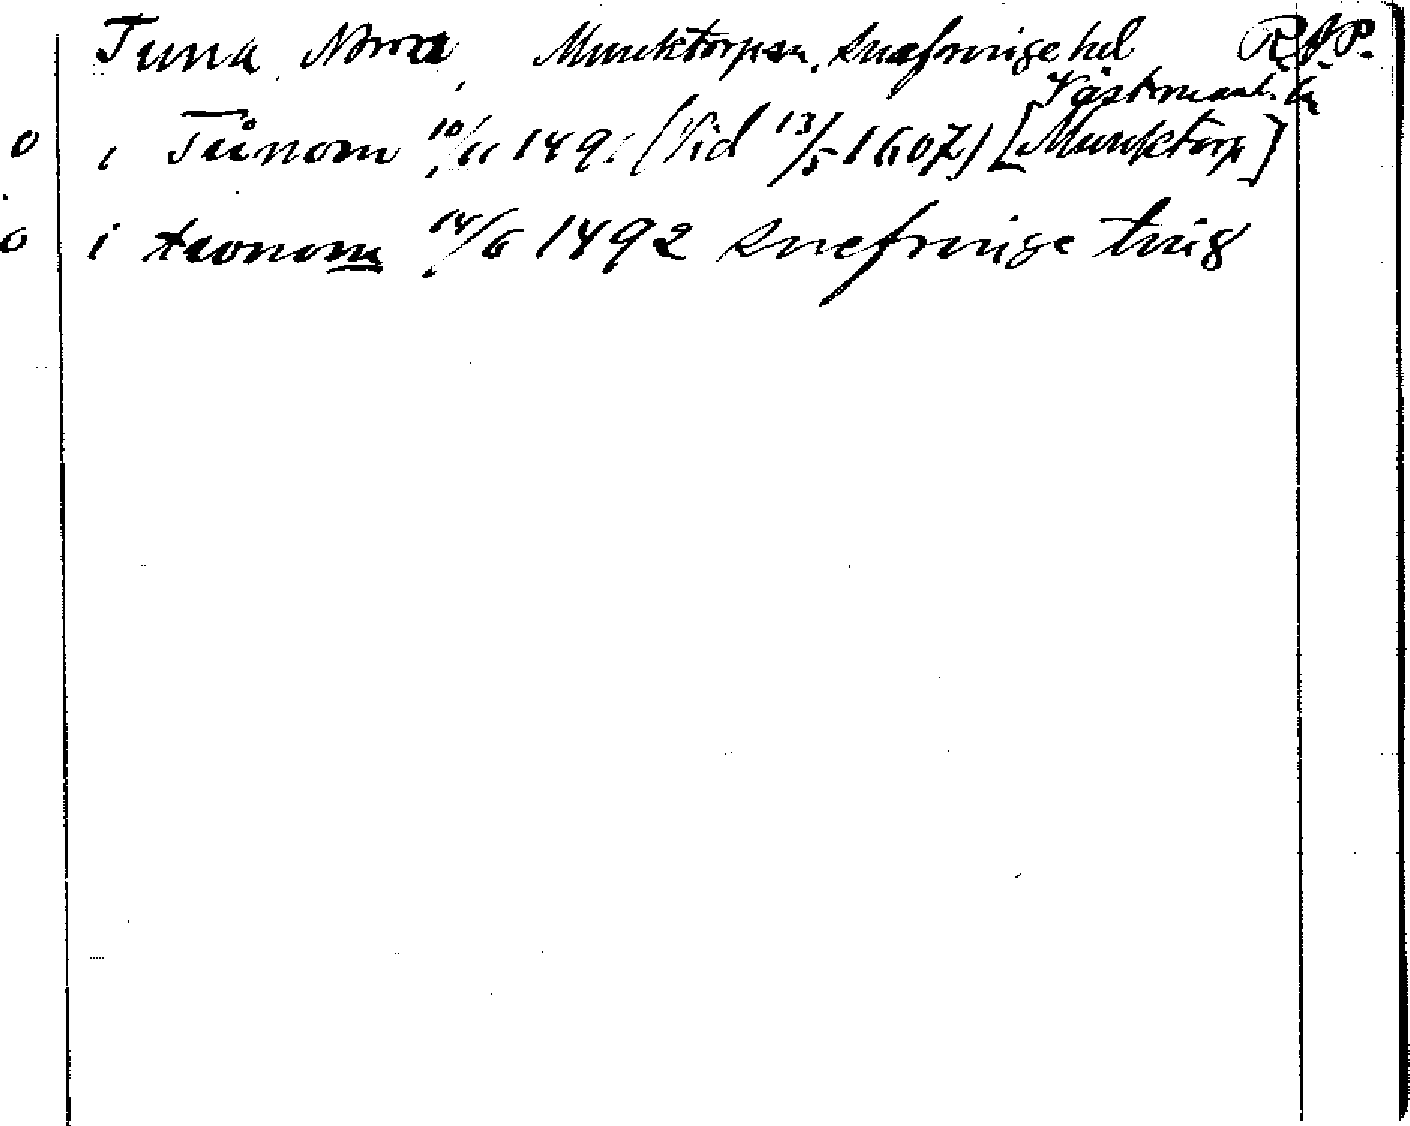 Tuna, Norra, Munktorps sn. Snefringe hd R.A.P.
Västmanl. län
o i Tünom 10/11 1491 (Vid 13/5 1607) [Munktorp]
o i twonom 14/6 1492 Snefringe ting